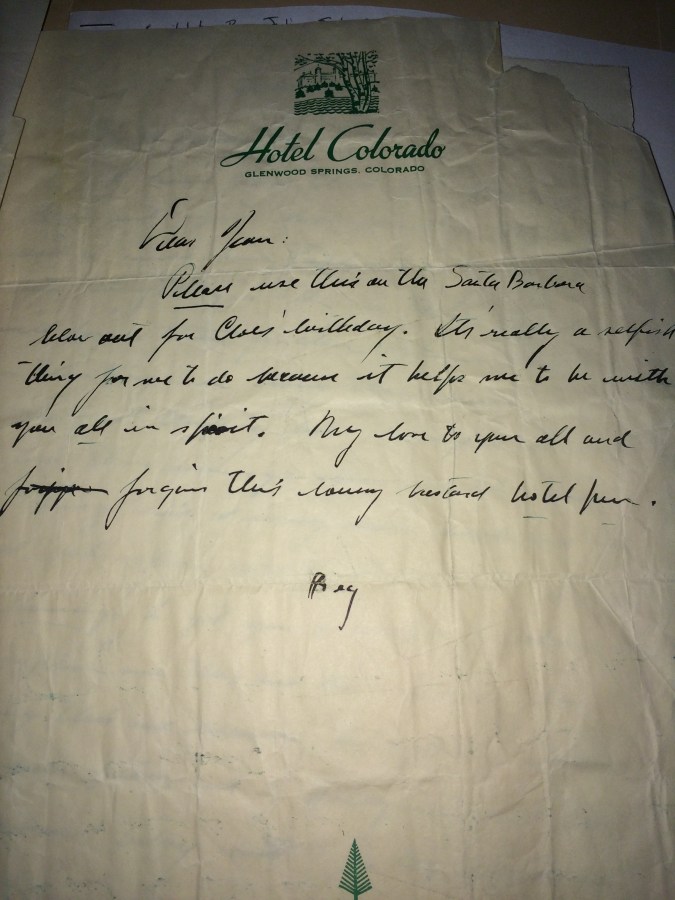 Hotel Colorado
GLENWOOD SPRINGS, COLORADO
Dear
Please use this on the Santa Barbara
blow out for birthday. It's really a selfish
thing for me to do because it helps me to be with
you all in spirit. My love to you all and
forgive this lousy bastard hotel pen.